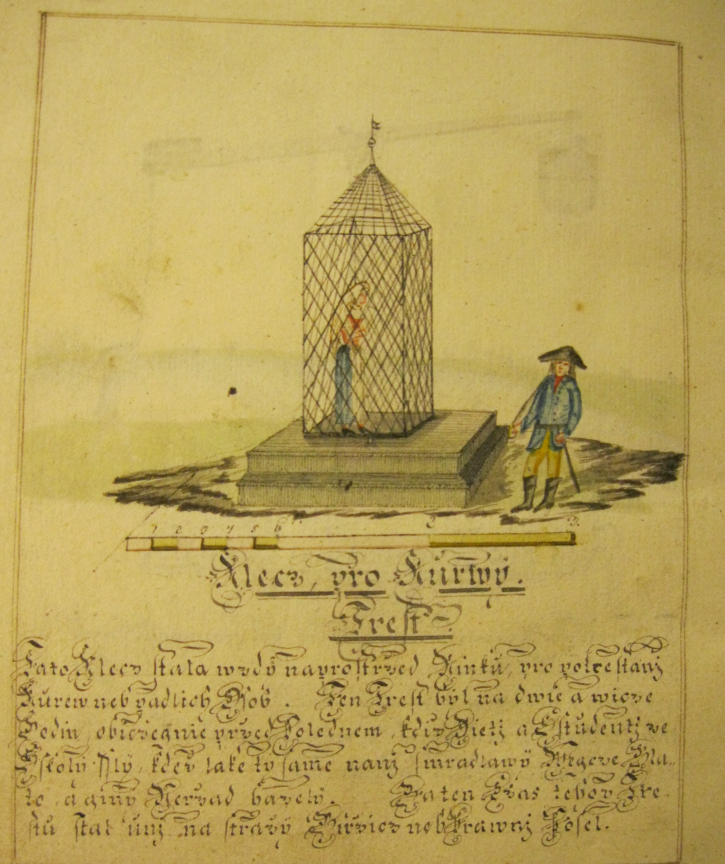 1 2 3 4 5 6
Klecz, pro Kurwy.
Trest.
Tato Klecz stala wzdy naprostrzed Rinku, pro potrestanj
Kurew neb padlich Osob. Ten Trest byl na dwie a wicze
Hodin, obiczegnie przed Polednem, kdiz Dietj a Studentj ze
Sskoly sslj, kdez take ty same nanj smradlawy Wegcze Bla-
to, a giny Nerzad hazely. Za ten Czas tehoz Tre-
stu stal unj na strazy Birzicz neb Prawnj Posel.